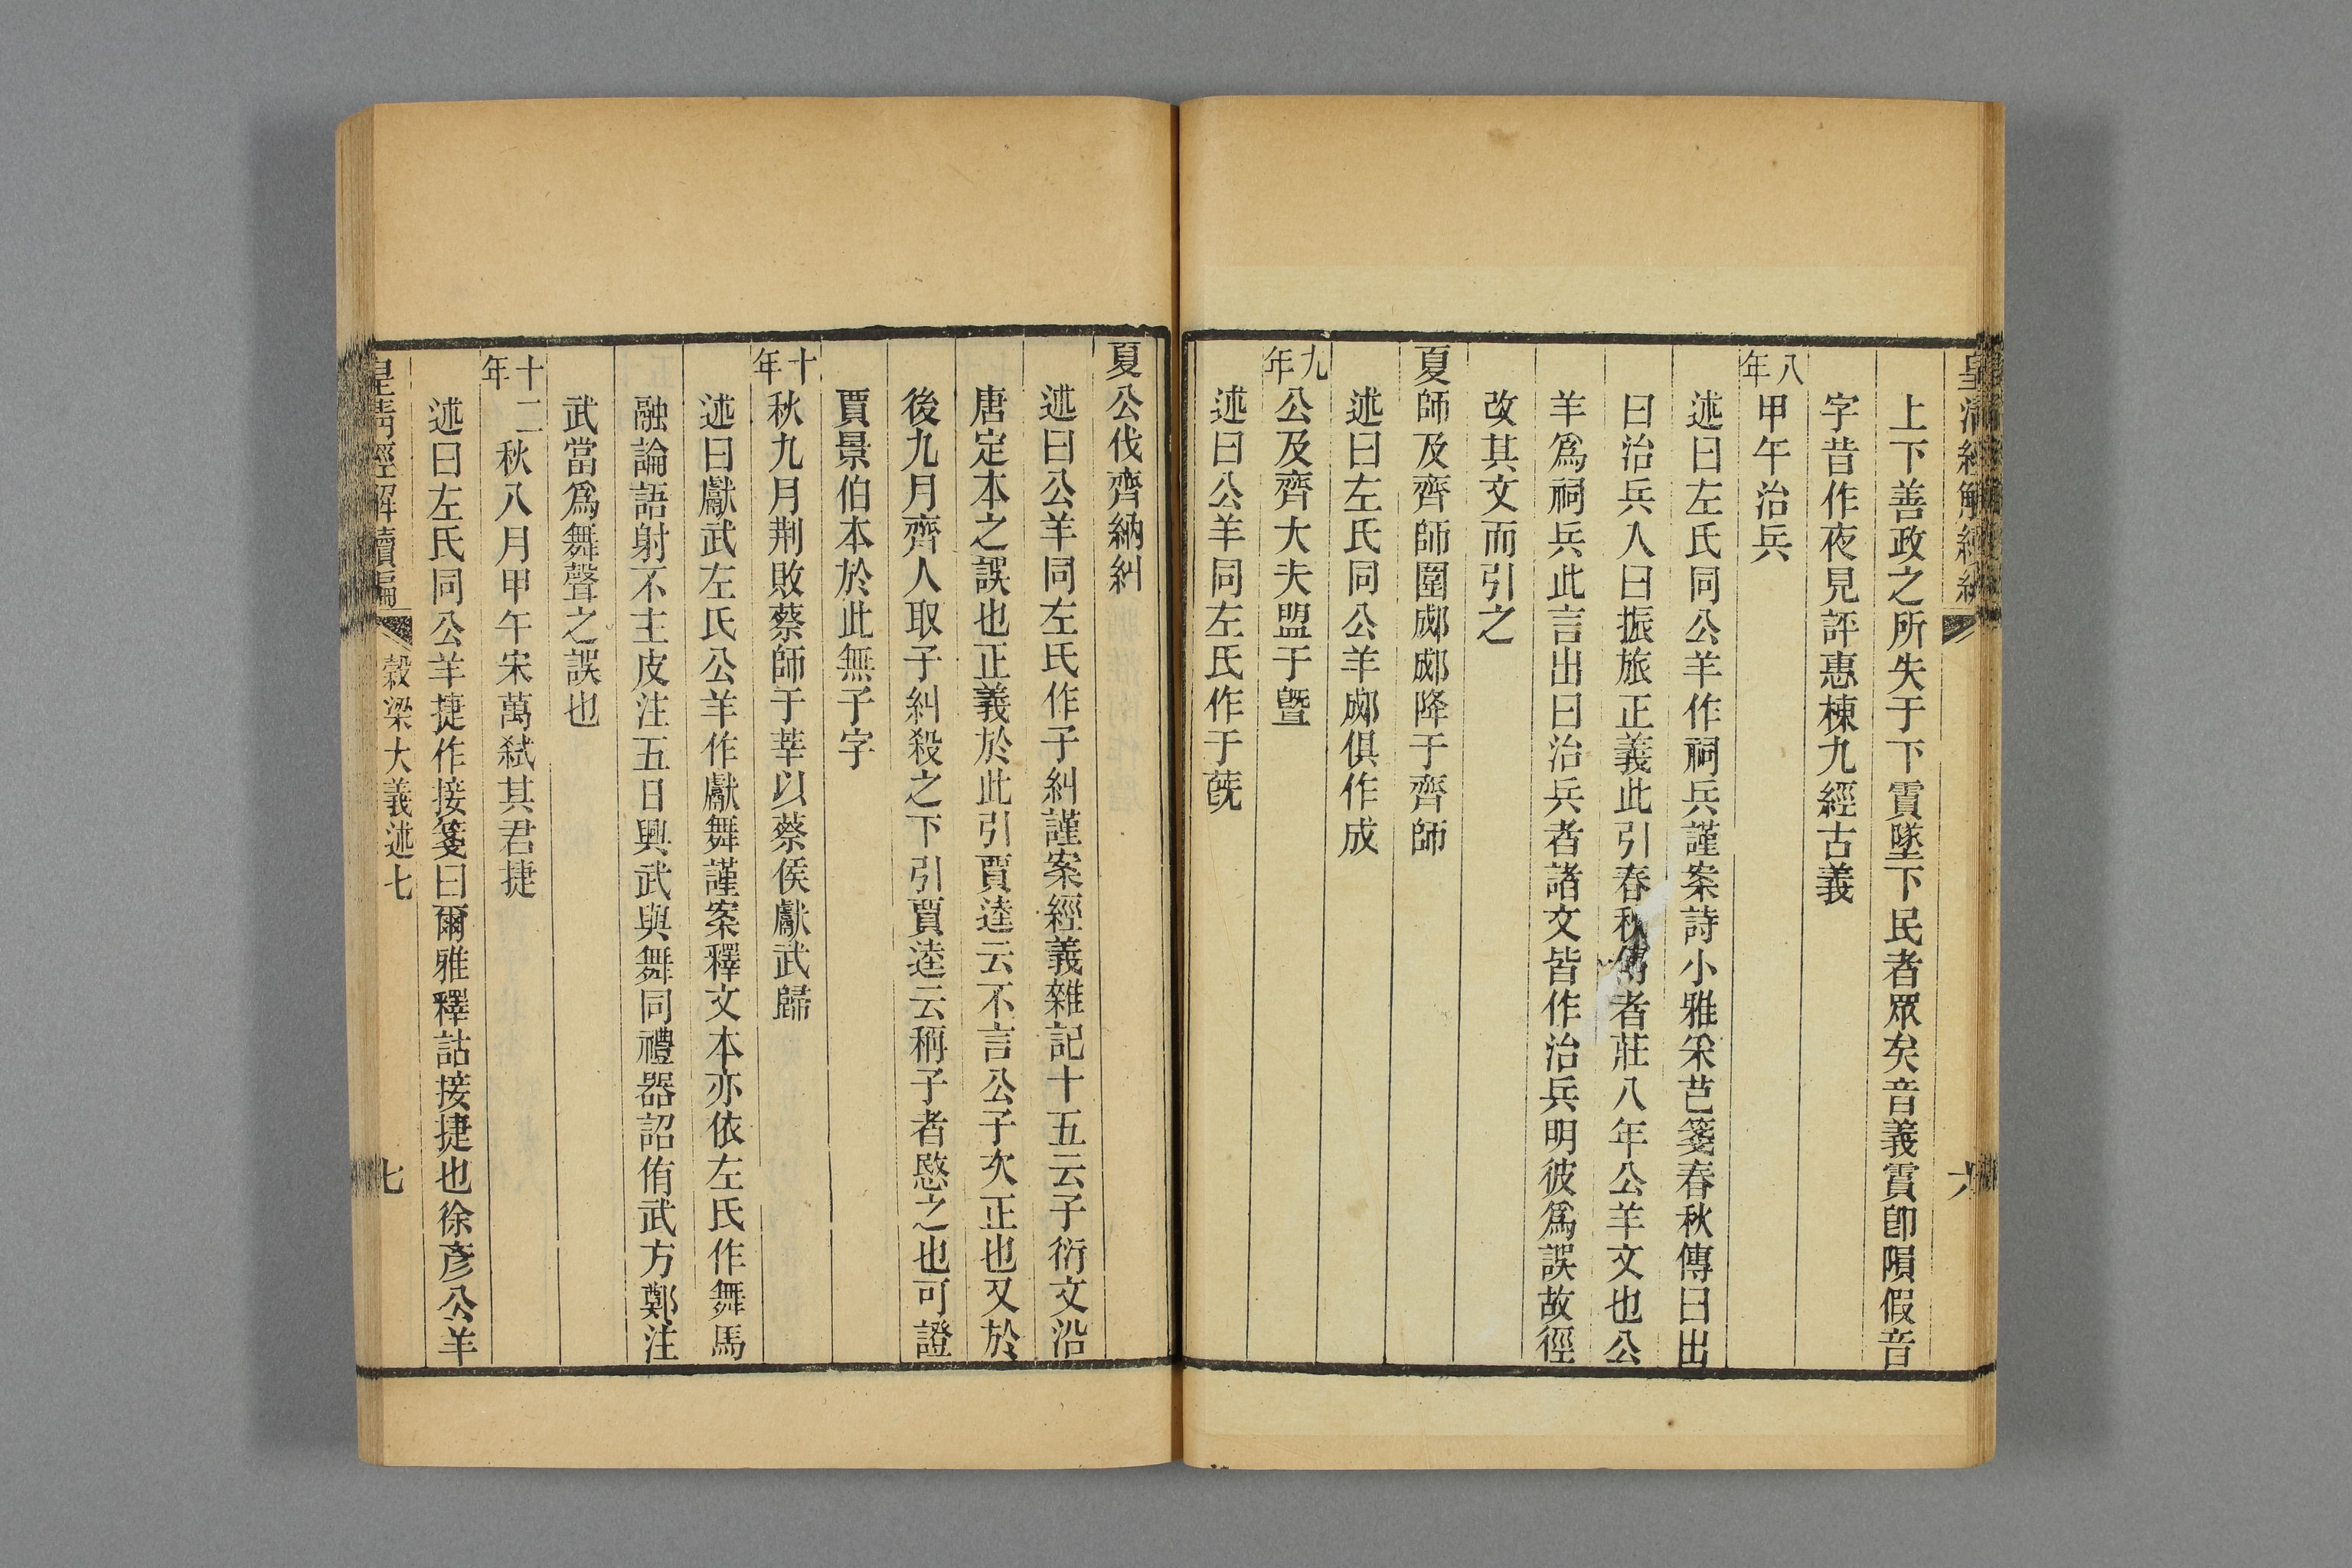 皇清經解續編
六
上下善政之所失于下霣墜下民者眾矣音義霣卽隕假音
字昔作夜見評惠棟九經古義
八年甲午治兵
述曰左氏同公羊作祠兵謹案詩小雅采芑箋春秋傳曰出
曰治兵入曰振旅正義此引春秋傳者莊八年公羊文也公
羊爲祠兵此言出曰治兵者諸文皆作治兵明彼爲誤故徑
改其文而引之
夏師及齊師圍郕郕降于齊師
述曰左氏同公羊郕俱作成
九年公及齊大夫盟于曁
述曰公羊同左氏作于蔇
夏公伐齊納糾
述曰公羊同左氏作子糾謹案經義雜記十五云子衍文沿
唐定本之誤也正義於此引賈逵云不言公子次正也又於
後九月齊人取子糾殺之下引賈逵云稱子者愍之也可證
賈景伯本於此無子字
十年秋九月荆敗蔡師于莘以蔡侯獻武歸
述曰獻武左氏公羊作獻舞謹案釋文本亦依左氏作舞馬
融論語射不主皮注五曰興武與舞同禮器詔侑武方鄭注
武當爲舞聲之誤也
十二年秋八月甲午宋萬弒其君捷
述曰左氏同公羊捷作接箋曰爾雅釋詁接捷也徐彥公羊
皇清經解續編
穀梁大義述七
七